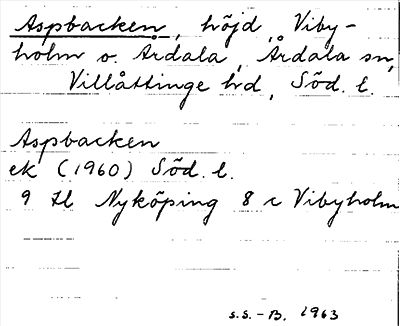 Aspbacken, höjd, Viby-
holm o. Årdala, Årdala sn,
Villåttinge hd, Söd. l.
Aspbacken
ek (1960) Söd. l.
9 H Nyköping 8 c Vibyholm
S.S.-B. 1963